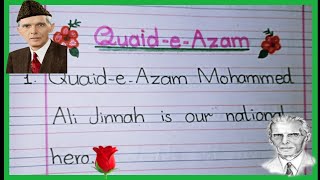 Quaid-e-Azam
1. Quaid-e-Azam Mohammed
Ali Jinnah is our national
hero.